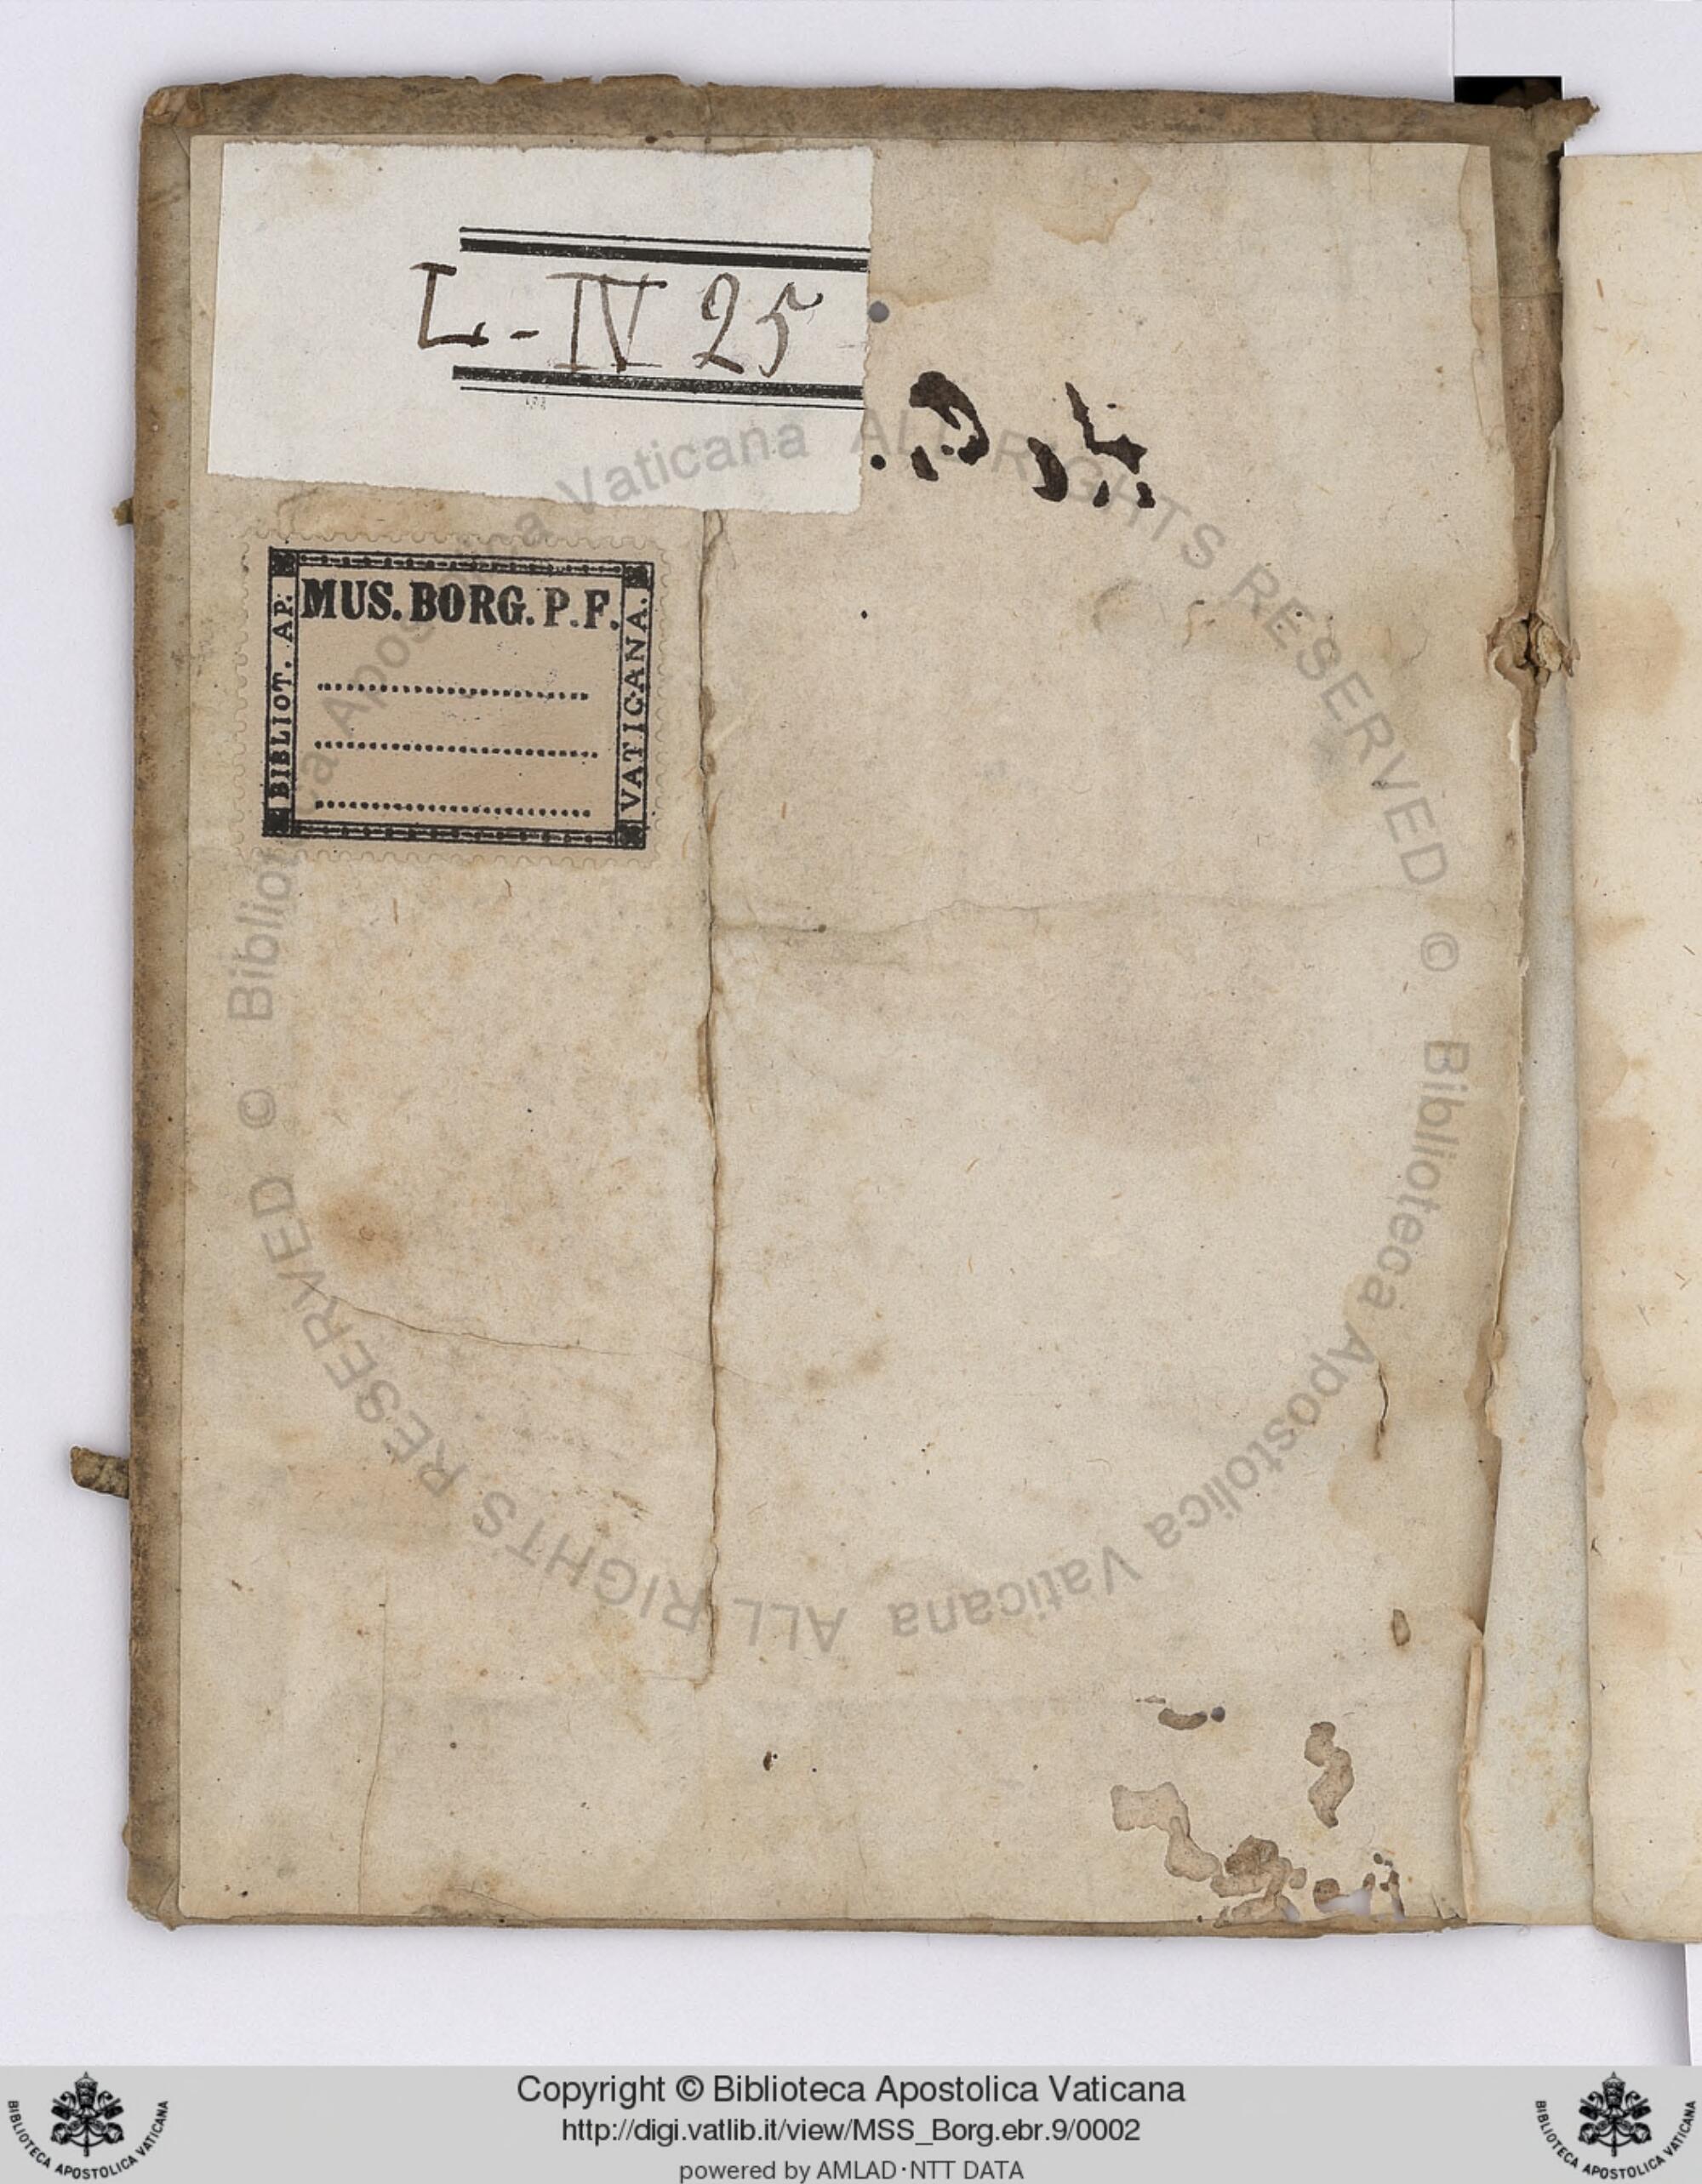 L - IV 25
MUS. BORG. P. F.
BIBLIOT. AP.
VATICANA.
© Biblioteca Apostolica Vaticana ALL RIGHTS RESERVED
© Biblioteca Apostolica Vaticana ALL RIGHTS RESERVED
Copyright © Biblioteca Apostolica Vaticana
http://digi.vatlib.it/view/MSS_Borg.ebr.9/0002
powered by AMLAD·NTT DATA
BIBLIOTECA APOSTOLICA VATICANA
BIBLIOTECA APOSTOLICA VATICANA